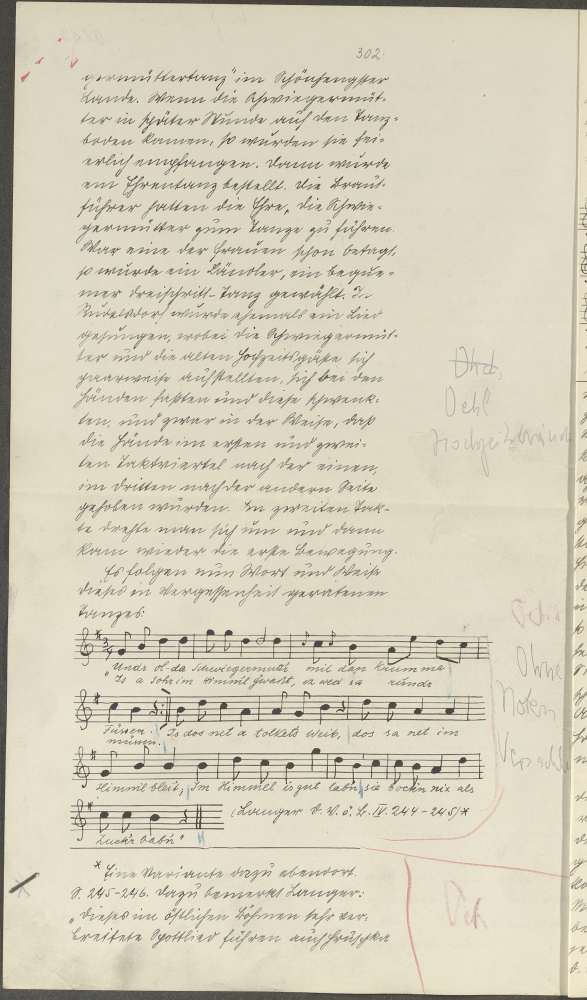 302
germüttertanz" im Schönhengster
Lande. Wenn die Schwiegermüt-
ter in später Stunde auf den Tanz-
boden kamen, so wurden sie fei-
erlich empfangen. Dann wurde
ein Ehrentanz bestellt. Die Braut-
führer hatten die Ehre, die Schwie-
germütter zum Tanze zu führen.
War eine der Frauen schon betagt,
so wurde ein Ländler, ein beque-
mer Dreischritt-Tanz gewählt. In
Rudelsdorf wurde ehemals ein Lied
gesungen, wobei die Schwiegermüt-
ter und die alten Hochzeitsgäste sich
paarweise aufstellten, sich bei den
Händen faßten und diese schwenk-
ten, und zwar in der Weise, daß
die Hände im ersten und zwei-
ten Taktviertel nach der einen,
im dritten nach der andern Seite
gehoben wurden. Im zweiten Tak-
te drehte man sich um und dann
kam wieder die erste Bewegung.
Es folgen nun Wort und Weise
dieses in Vergessenheit geratenen
Tanzes:
"Undr ol-da Schwiegermutt mit dan krumma
Is a sohr im Himml
Füssen. Is dos net a tolkets Weib, dos sa net im
müssn.
Himml bleit, im Himmel is gut labn, sie
Zuckr babn"
(Langer D. V. ö. B. IV. 244-245)*
* Eine Variante dazu ebendort.
S. 245-246. Dazu bemerkt Langer:
"Dieses im östlichen Böhmen sehr ver-
breitete Spottlied führen auch Hruschka
Oehl
Ohne
Noten